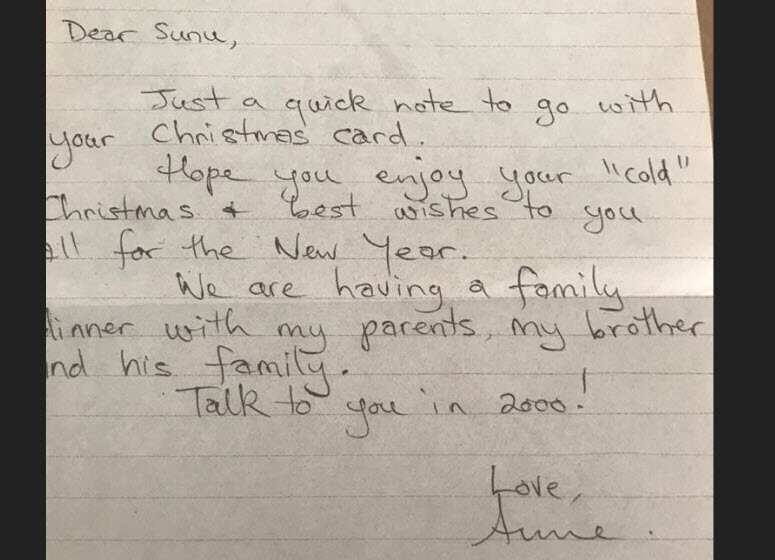 Dear Sunu,
Just a quick note to go with
your Christmas card.
Hope you enjoy your "cold"
Christmas & best wishes to you
all for the New Year.
We are having a family
dinner with my parents, my brother
and his family.
Talk to you in 2000!
Love,
Anne.